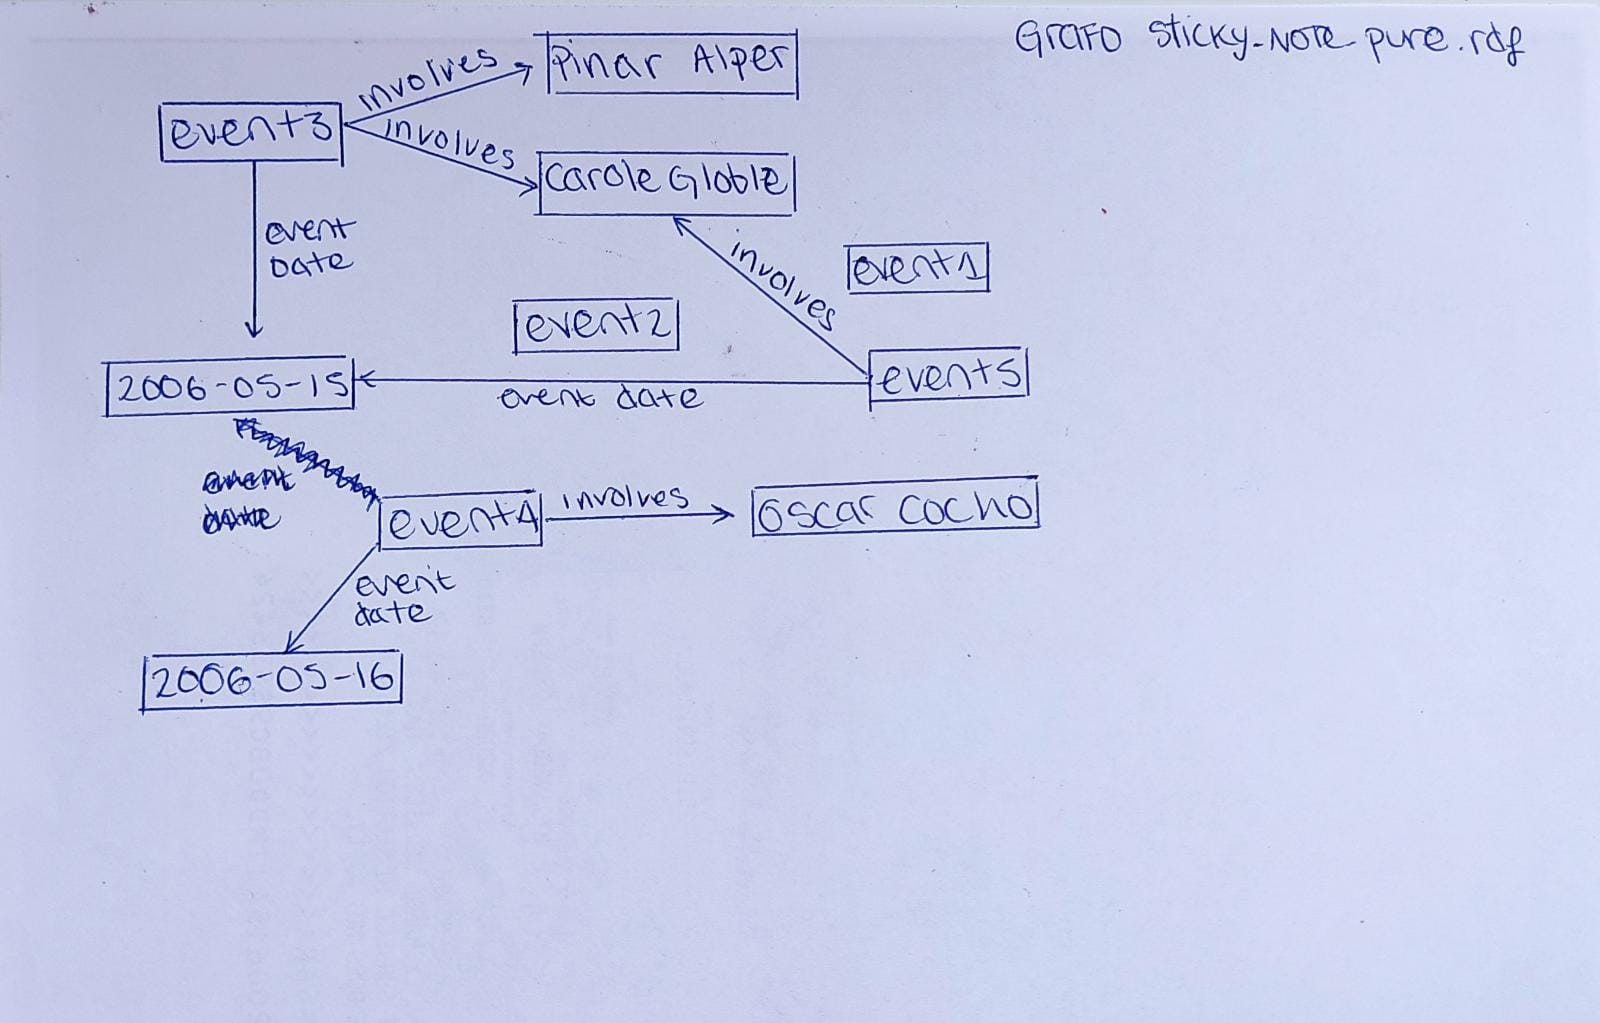 Grafo sticky-NOTE-pure.rdf
involves
Pinar Alper
event3
involves
Carole Globle
event
Date
involves
event1
event2
2006-05-15
event date
event5
event
date
event4
involves
oscar cocho
event
date
2006-05-16